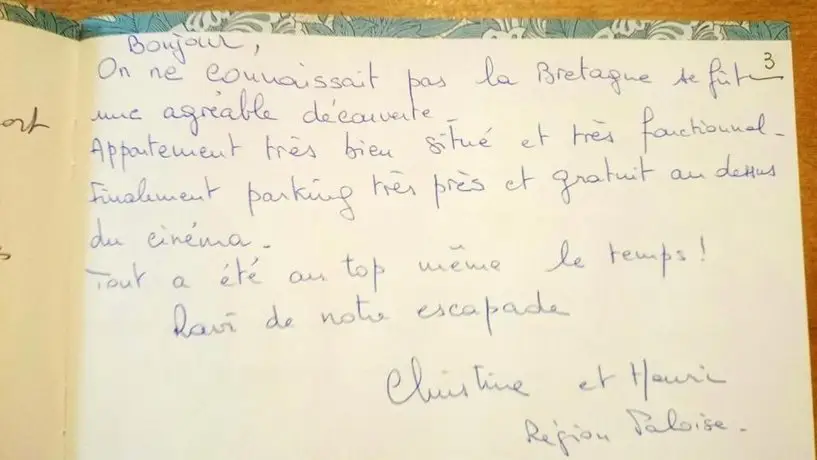 Bonjour,
3
On ne connaissait pas la Bretagne se fût
une agréable découverte -
Appartement très bien situé et très fonctionnel -
finalement parking très près et gratuit au dessus
du cinéma -
Tout a été au top même le temps !
Ravi de notre escapade
Christine et Henri
Région Paloise -
ort